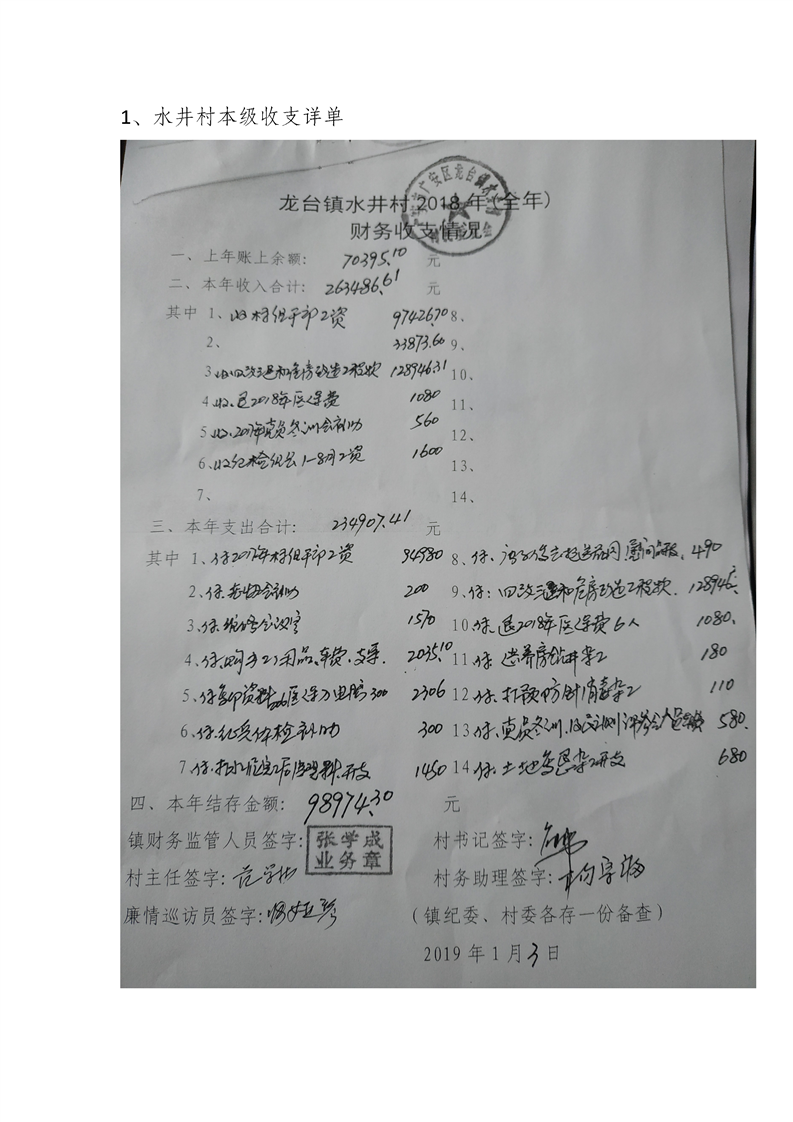 1、水井村本级收支详单
龙台镇水井村2018年(全年)
财务收支情况
一、上年账上余额: 70395.10 元
二、本年收入合计: 263486.61 元
其中 1、收村组干部工资 97426.70 8、
2、 33873.60 9、
3、收四改三建和危房改造工程款 128946.31 10、
4、收、退2018年医保费 1080 11、
5、收、2017年党员冬训会补助 560 12、
6、收纪检组长1-8月工资 1600 13、
7、 14、
三、本年支出合计: 234907.41 元
其中 1、付2017年村组干部工资 94980 8、付、490
2、付、会补助 200 9、付:四改三建和危房改造工程款. 128946.
3、付、维修会议室 1570 10、付、退2018年医保费6人 1080.
4、付、购办公用品、车费、支票. 2035.10 11、付、钻井杂工 180
5、付复印资料 医保刀电脑300 2306 12、付、打预防针消毒杂工 110
6、付、征兵体检补助 300 13、付、党员冬训、580.
7、付、资料开支 1450 14、付、土地 杂工开支 680
四、本年结存金额: 98974.30 元
镇财务监管人员签字: 张学成 业务章 村书记签字:
村主任签字: 村务助理签字:
廉情巡访员签字: (镇纪委、村委各存一份备查)
2019年1月3日